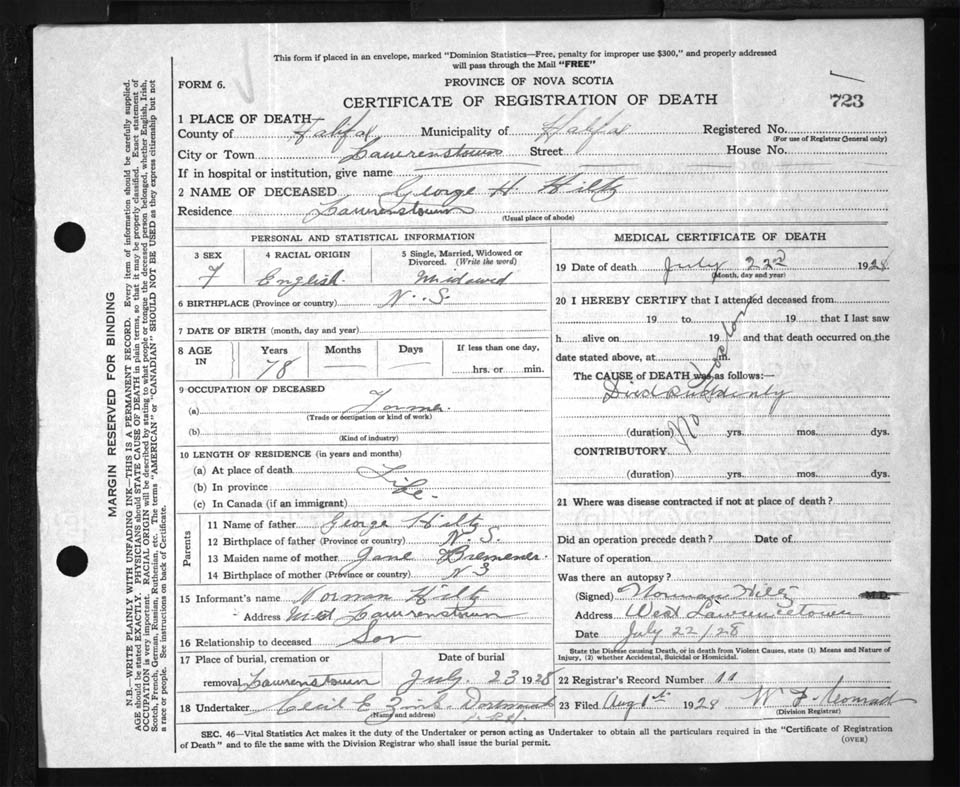 This form if placed in an envelope, marked "Dominion Statistics—Free, penalty for improper use $300," and properly addressed
will pass through the Mail "FREE"
FORM 6.
PROVINCE OF NOVA SCOTIA
CERTIFICATE OF REGISTRATION OF DEATH
723
1 PLACE OF DEATH—
County of Halifax Municipality of Halifax Registered No.
(For use of Registrar General only)
City or Town Lawrenstown Street House No.
If in hospital or institution, give name
2 NAME OF DECEASED George H. Hiltz
Residence Lawrenstown
(Usual place of abode)
PERSONAL AND STATISTICAL INFORMATION
3 SEX
4 RACIAL ORIGIN
English.
5 Single, Married, Widowed or
Divorced. (Write the word)
Widowed
6 BIRTHPLACE (Province or country) N. S.
7 DATE OF BIRTH (month, day and year)
8 AGE
IN
Years
78
Months
—
Days
—
If less than one day,
hrs. or min.
9 OCCUPATION OF DECEASED
(a)
(Trade or occupation or kind of work)
(b)
(Kind of industry)
10 LENGTH OF RESIDENCE (in years and months)
(a) At place of death
(b) In province Life.
(c) In Canada (if an immigrant)
Parents
11 Name of father George Hiltz
12 Birthplace of father (Province or country) N. S.
13 Maiden name of mother Jane
14 Birthplace of mother (Province or country) N S
15 Informant's name Norman Hiltz
Address West Lawrenstown
16 Relationship to deceased Son
17 Place of burial, cremation or Date of burial
removal Lawrenstown July 23 1928
18 Undertaker Cecil E.
(Name and address)
MEDICAL CERTIFICATE OF DEATH
19 Date of death July 22nd 1928
(Month, day and year)
20 I HEREBY CERTIFY that I attended deceased from
19 to 19 that I last saw
h alive on 19 and that death occurred on the
date stated above, at m.
The CAUSE of DEATH was as follows:—
Died Suddenly
No doctor
(duration) yrs. mos. dys.
CONTRIBUTORY
(duration) yrs. mos. dys.
21 Where was disease contracted if not at place of death?
Did an operation precede death? Date of
Nature of operation
Was there an autopsy?
(Signed) Norman Hiltz M.D.
Address West Lawrencetown
Date July 22/28
State the Disease causing Death, or in death from Violent Causes, state (1) Means and Nature of
Injury, (2) whether Accidental, Suicidal or Homicidal.
22 Registrar's Record Number 11
23 Filed Aug 1st 1928 W F
(Division Registrar)
SEC. 46—Vital Statistics Act makes it the duty of the Undertaker or person acting as Undertaker to obtain all the particulars required in the "Certificate of Registration
of Death" and to file the same with the Division Registrar who shall issue the burial permit.
(OVER)
MARGIN RESERVED FOR BINDING
N.B.—WRITE PLAINLY WITH UNFADING INK—THIS IS A PERMANENT RECORD. Every item of information should be carefully supplied.
AGE should be stated EXACTLY. PHYSICIANS should STATE CAUSE OF DEATH in plain terms, so that it may be properly classified. Exact statement of
OCCUPATION is very important. RACIAL ORIGIN will be described by stating to what people or tongue the deceased person belonged, whether English, Irish,
Scotch, French, German, Russian, Ruthenian, etc. The terms "AMERICAN" or "CANADIAN" SHOULD NOT BE USED as they express citizenship but not
a race or people. See instructions on back of Certificate.